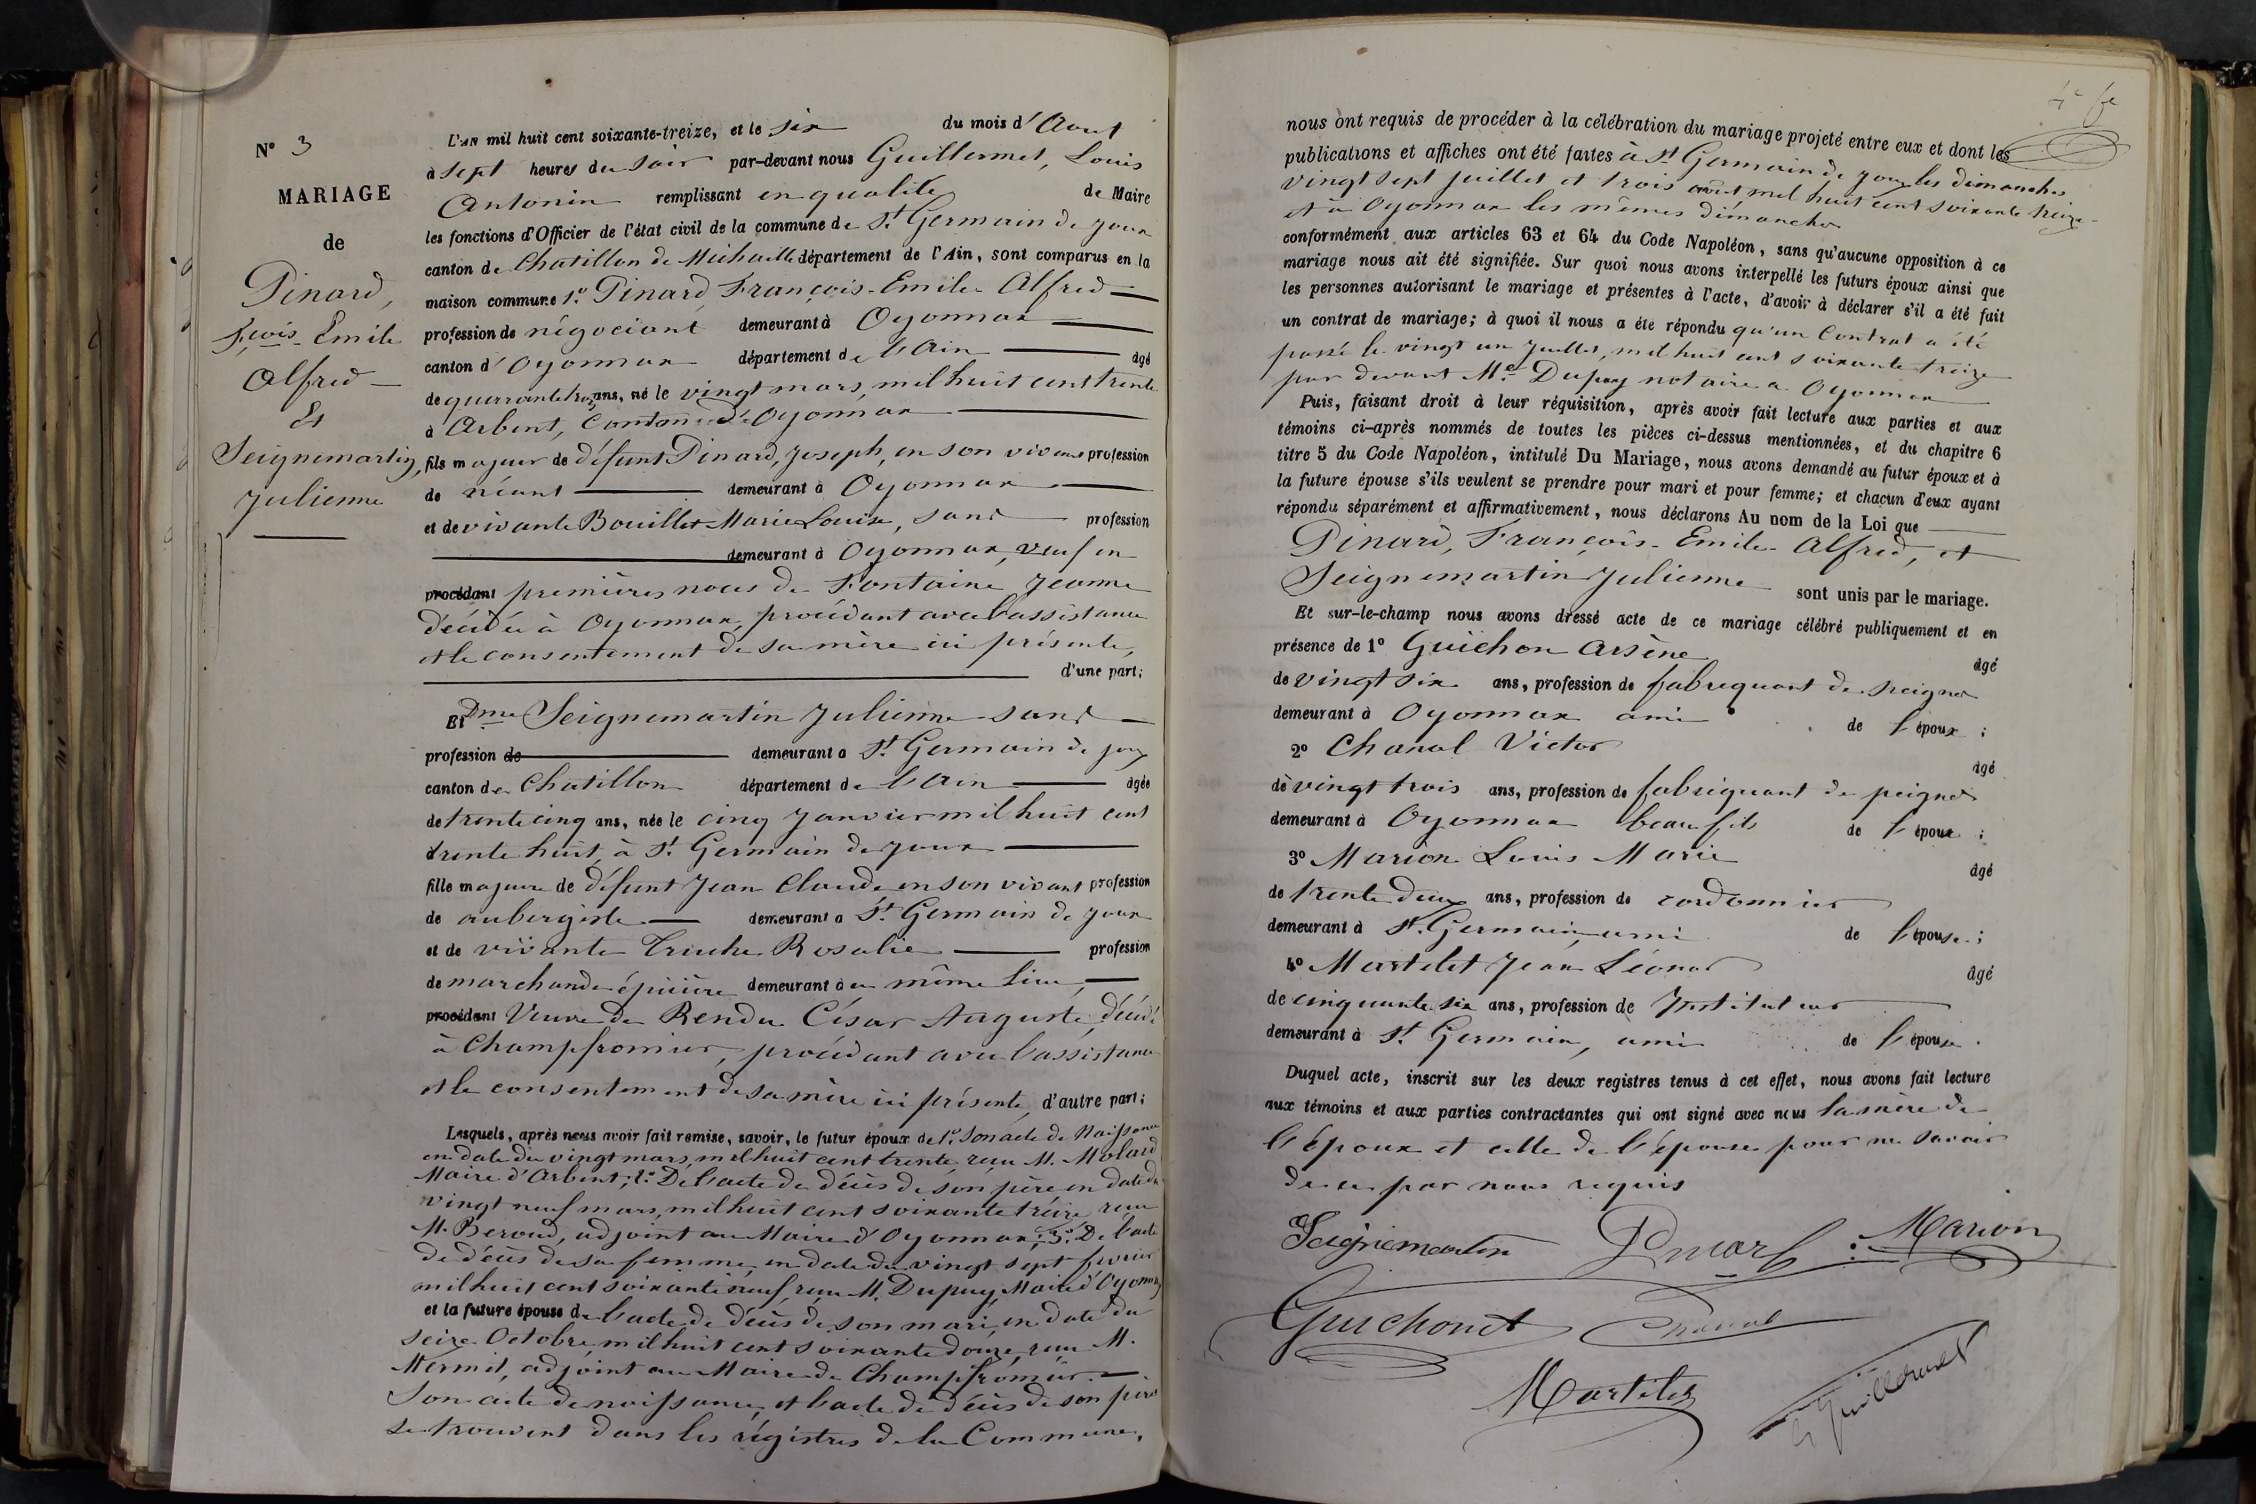 N° 3
MARIAGE
de
Pinard,
Fçois Emile
Alfred
Et
Seignemartin,
Julienne
L'AN mil huit cent soixante-treize, et le six du mois d'Aout
à sept heures du soir par-devant nous Guillermet, Louis
Antonin remplissant en qualité de Maire
les fonctions d'Officier de l'état civil de la commune de St Germain de Joux
canton de Chatillon de Michaille département de l'Ain, sont comparus en la
maison commune 1° Pinard François-Emile-Alfred
profession de négociant demeurant à Oyonnax
canton d'Oyonnax département de l'Ain âgé
de quarante trois ans, né le vingt mars, mil huit cent trente
à Arbent, Canton d'Oyonnax
fils majeur de défunt Pinard, Joseph, en son vivant profession
de néant demeurant à Oyonnax
et de vivante Bouillet Marie Louise, sans profession
demeurant à Oyonnax, veuf en
procédant premières noces de Fontaine Jeanne
décédée à Oyonnax, procédant avec l'assistance
et le consentement de sa mère ici présente,
d'une part;
Et Dme Seignemartin Julienne sans
profession de demeurant à St Germain de Joux
canton de Chatillon département de l'Ain âgée
de trente cinq ans, née le cinq Janvier mil huit cent
trente huit, à St Germain de Joux
fille majeure de défunt Jean Claude en son vivant profession
de aubergiste demeurant à St Germain de Joux
et de vivante Truche Rosalie profession
de marchande épicière demeurant à ce même lieu,
procédant Veuve de Rendu César Auguste, décédé
à Champfromier, procédant avec l'assistance
et le consentement de sa mère ici présente, d'autre part;
Lesquels, après nous avoir fait remise, savoir, le futur époux de 1° Son acte de Naissance
en date du vingt mars, mil huit cent trente reçu M. Molard
Maire d'Arbent; 2° De l'acte de décès de son père en date du
vingt neuf mars, mil huit cent soixante treize reçu
M. Beroud, adjoint au Maire d'Oyonnax; 3° De l'acte
de décès de sa femme, en date du vingt sept fevrier
mil huit cent soixante neuf reçu M. Dupuy, Maire d'Oyonnax
et la future épouse de l'acte de décès de son mari, en date du
seize Octobre, mil huit cent soixante douze, reçu M.
Mermet, adjoint au Maire de Champfromier.
Son acte de naissance, et l'acte de décès de son père
se trouvent dans les régistres de la Commune.
nous ont requis de procéder à la célébration du mariage projeté entre eux et dont les
publications et affiches ont été faites à St Germain de Joux les dimanches
vingt sept juillet et trois aout, mil huit cent soixante treize
et à Oyonnax les mêmes dimanches
conformément aux articles 63 et 64 du Code Napoléon, sans qu'aucune opposition à ce
mariage nous ait été signifiée. Sur quoi nous avons interpellé les futurs époux ainsi que
les personnes autorisant le mariage et présentes à l'acte, d'avoir à déclarer s'il a été fait
un contrat de mariage; à quoi il nous a été répondu qu'un Contrat a été
passé le vingt un Juillet, mil huit cent soixante treize
par devant Me Dupuy notaire à Oyonnax
Puis, faisant droit à leur réquisition, après avoir fait lecture aux parties et aux
témoins ci-après nommés de toutes les pièces ci-dessus mentionnées, et du chapitre 6
titre 5 du Code Napoléon, intitulé Du Mariage, nous avons demandé au futur époux et à
la future épouse s'ils veulent se prendre pour mari et pour femme; et chacun d'eux ayant
répondu séparément et affirmativement, nous déclarons Au nom de la Loi que
Pinard, François-Emile-Alfred, et
Seignemartin Julienne sont unis par le mariage.
Et sur-le-champ nous avons dressé acte de ce mariage célébré publiquement et en
présence de 1° Guichon Arsène âgé
de vingt six ans, profession de fabriquant de peignes
demeurant à Oyonnax ami de l'époux;
2° Chanal Victor âgé
de vingt trois ans, profession de fabriquant de peignes
demeurant à Oyonnax beau fils de l'époux;
3° Marion Louis Marie âgé
de trente deux ans, profession de cordonnier
demeurant à St Germain, ami de l'épouse;
4° Martelet Jean Léonard âgé
de cinquante six ans, profession de Instituteur
demeurant à St Germain, ami de l'épouse.
Duquel acte, inscrit sur les deux registres tenus à cet effet, nous avons fait lecture
aux témoins et aux parties contractantes qui ont signé avec nous la mère de
l'époux et celle de l'épouse pour ne savoir
de ce par nous requis
Seignemartin Pinard Marion
Guichonet Chanal
Martelet L Guillermet